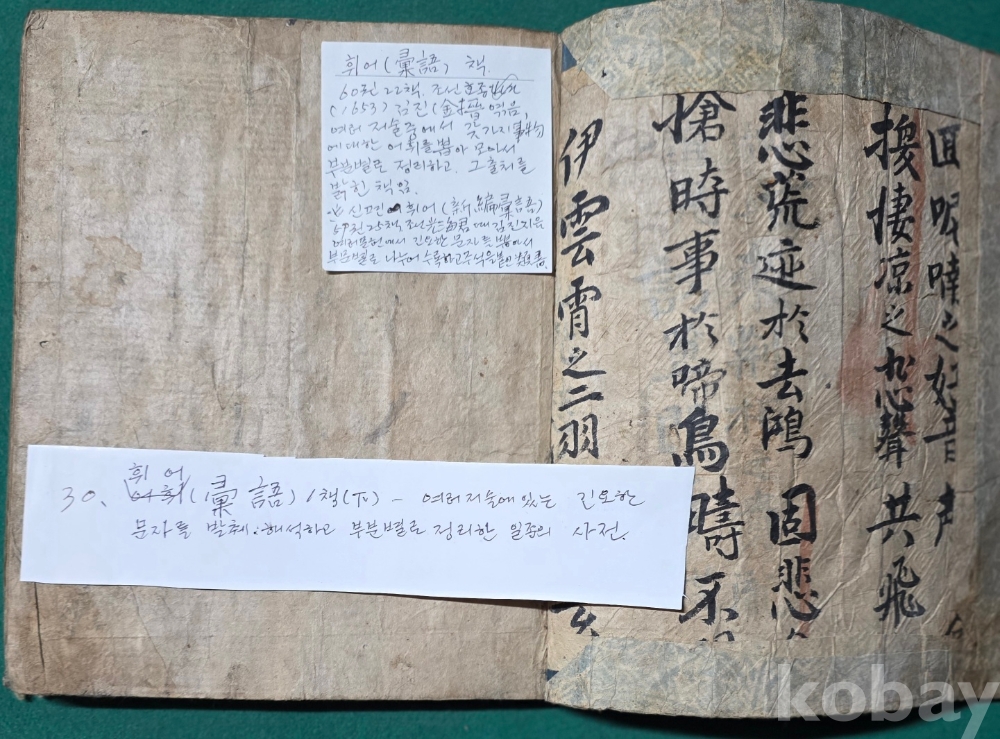 휘어(彙語) 책.
60권 22책. 조선 효종
(1653) 김진(金搢) 엮음,
여러 저술중에서 갖가지 事物
에대한 어휘를 뽑아 모아서
부분별로 정리하고. 그출처를
밝힌 책임.
신편휘어(新編彙語)
59권 25책 조선 때 김진지음
여러문헌에서 긴요한 문자를 뽑아서
부문별로 나누어 수록하고 주석을
30. 휘어(彙語) 1책(下) - 여러저술에있는 긴요한
문자를 발췌·해석하고 부분별로 정리한 일종의 사전.
之好音
凄凉之 聲 共飛
悲 迹於去鴻 固悲
愴時事於啼鳥 不
伊雲霄之二羽
kobay